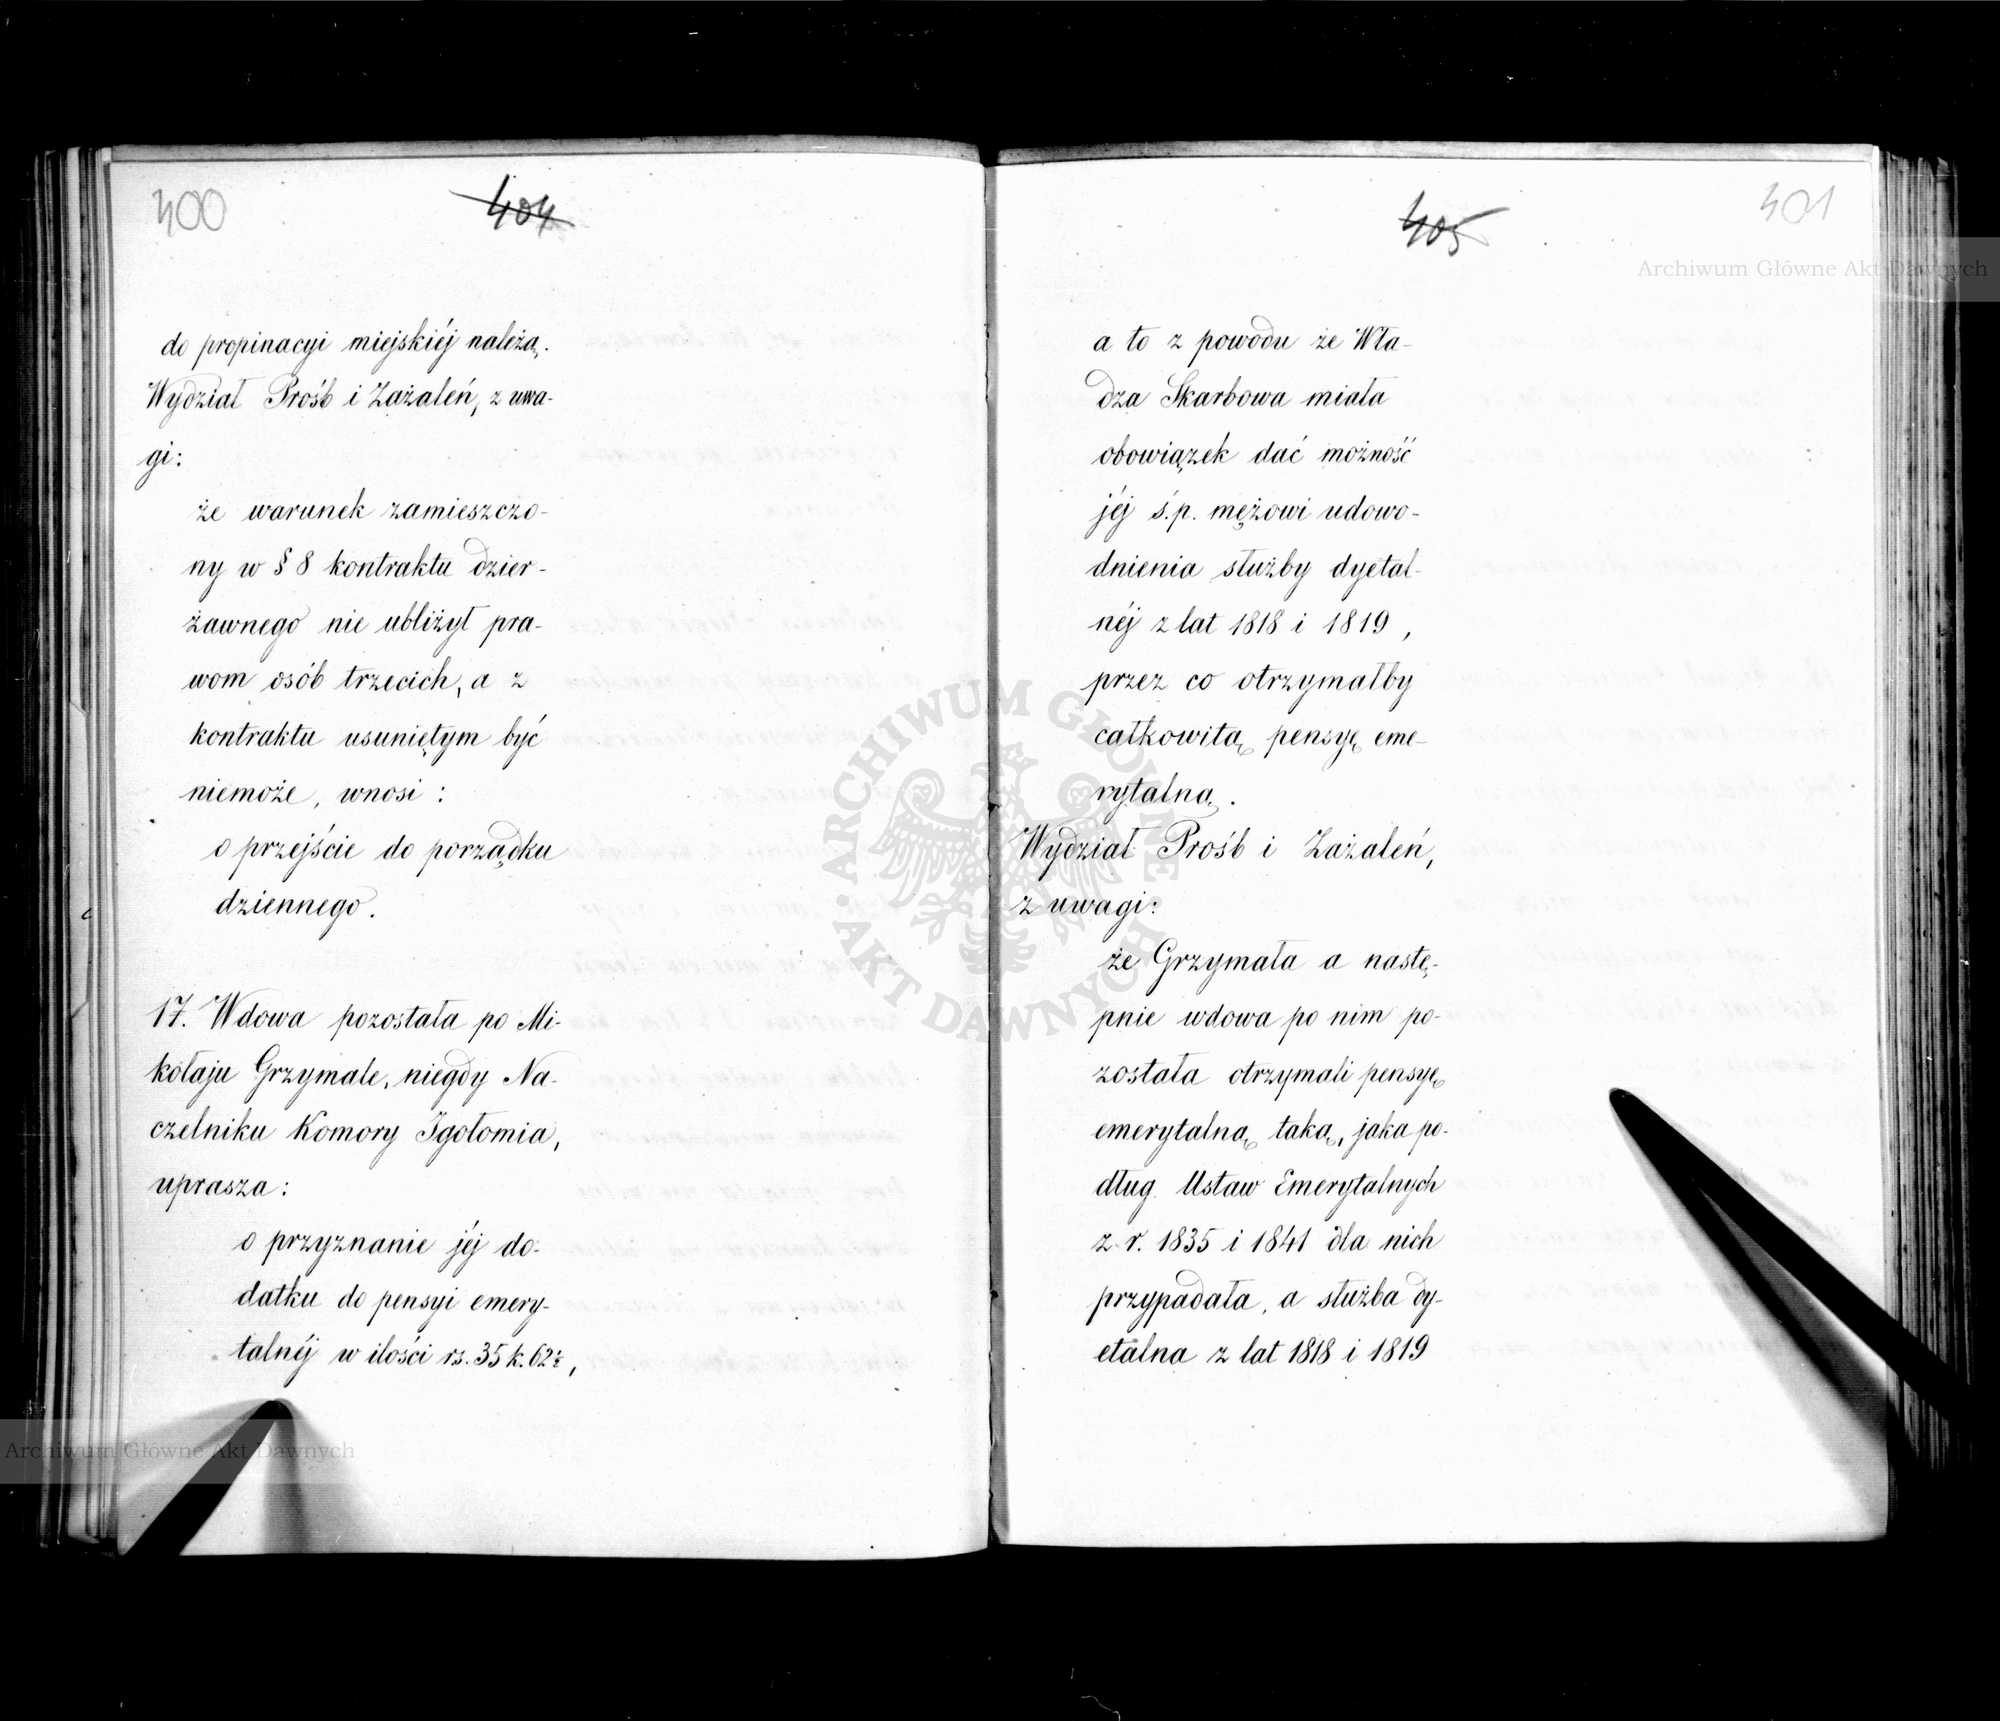 400
404
do propinacyi miejskiéj należą.
Wydział Prośb i Zażaleń, z uwa-
gi:
że warunek zamieszczo-
ny w § 8 kontraktu dzier-
żawnego nie ubliżył pra-
wom osób trzecich, a z
kontraktu usuniętym być
niemoże, wnosi:
o przejście do porządku
dziennego.
17. Wdowa pozostała po Mi-
kołaju Grzymale, niegdy Na-
czelniku Komory Igołomia,
uprasza:
o przyznanie jéj do-
datku do pensyi emery-
talnéj w ilości rs. 35 k. 62½,
405
401
a to z powodu że Wła-
dza Skarbowa miała
obowiązek dać możność
jéj ś.p. mężowi udowo-
dnienia służby dyetal-
néj z lat 1818 i 1819,
przez co otrzymałby
całkowitą pensyę eme-
rytalną.
Wydział Prośb i Zażaleń,
z uwagi:
że Grzymała a nastę-
pnie wdowa po nim po-
została otrzymali pensyę
emerytalną taką, jaka po-
dług Ustaw Emerytalnych
z r. 1835 i 1841 dla nich
przypadała, a służba dy-
etalna z lat 1818 i 1819
Archiwum Główne Akt Dawnych
ARCHIWUM GŁÓWNE
AKT DAWNYCH
Archiwum Główne Akt Dawnych